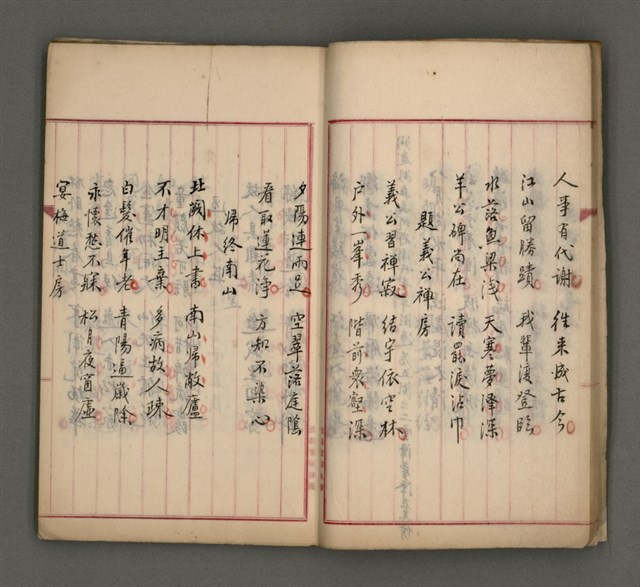 人事有代謝　往来成古今
江山留勝蹟　我輩復登臨
水落魚梁淺　天寒夢澤深
羊公碑尚在　讀罷淚沾巾
題義公禅房
義公習禅寂　結宇依空林
户外一峯秀　階前衆壑深
夕陽連雨足　空翠落庭陰
看取蓮花淨　方知不染心
歸終南山
北闕休上書　南山歸敝廬
不才明主棄　多病故人疎
白髪催年老　青陽逼歲除
永懷愁不寐　松月夜窗虛
宴梅道士房